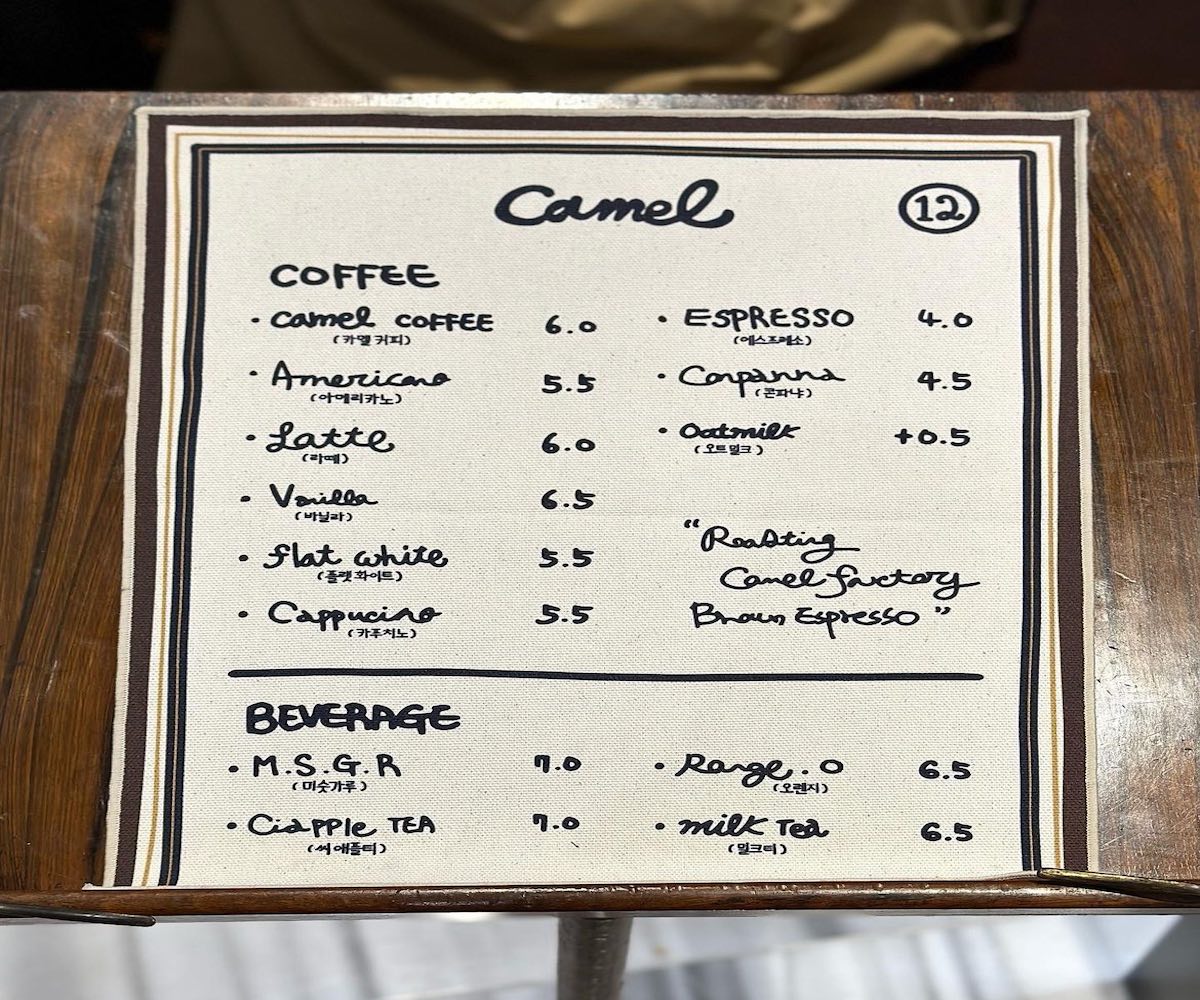 Camel
12
COFFEE
• Camel COFFEE 6.0
(카멜 커피)
• Americano 5.5
(아메리카노)
• Latte 6.0
(라떼)
• Vanilla 6.5
(바닐라)
• flat white 5.5
(플랫 화이트)
• Cappucino 5.5
(카푸치노)
• ESPRESSO 4.0
(에스프레소)
• Conpanna 4.5
(콘파냐)
• Oatmilk +0.5
(오트밀크)
“Roasting
Camel factory
Brown Espresso”
BEVERAGE
• M.S.G.R 7.0
(미숫가루)
• Ciapple TEA 7.0
(씨애플티)
• Range.O 6.5
(오렌지)
• milk Tea 6.5
(밀크티)